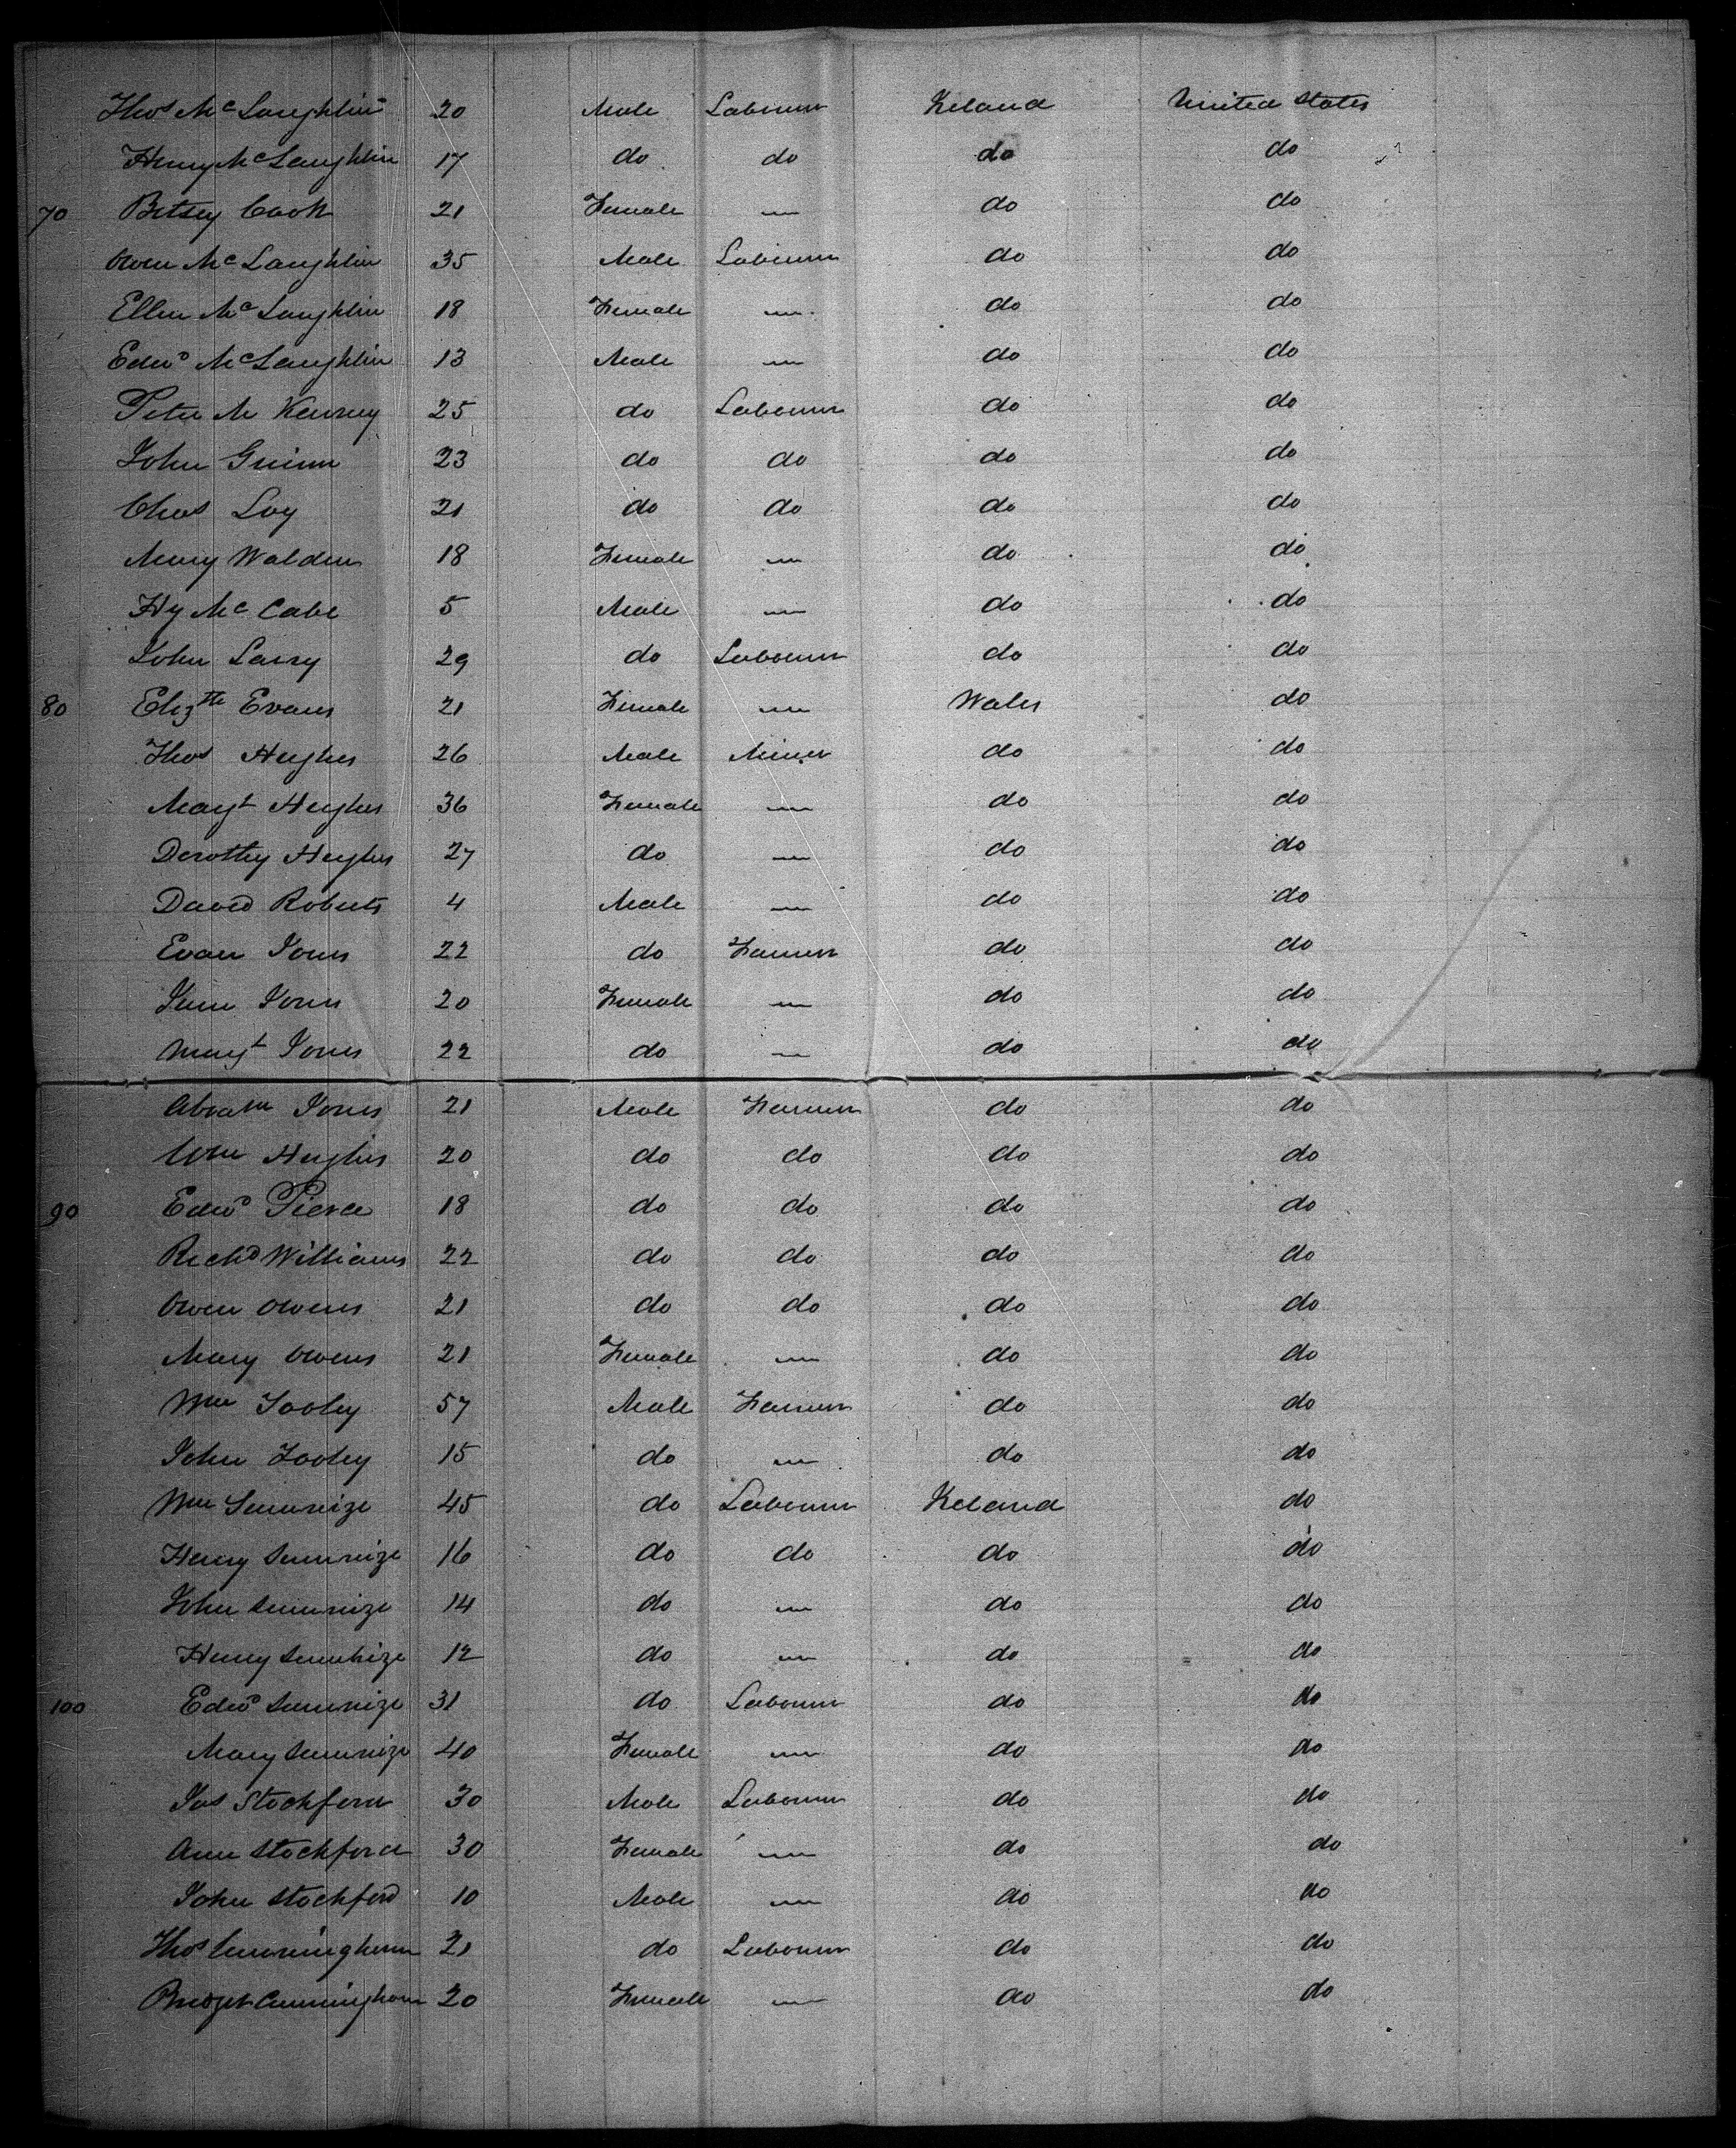 Thos McLaughlin 20 Male Labourer Ireland United States
Henry McLaughlin 17 do do do do
70 Betsey Cook 21 Female — do do
Owen McLaughlin 35 Male Labourer do do
Ellen McLaughlin 18 Female — do do
Edwd McLaughlin 13 Male — do do
Peter M Kenney 25 do Labourer do do
John Guinn 23 do do do do
Chas Loy 21 do do do do
Mary Walden 18 Female — do do
Hy McCabe 5 Male — do do
John Larry 29 do Labourer do do
80 Elizth Evans 21 Female — Wales do
Thos Hughes 26 Male Miner do do
Margt Hughes 36 Female — do do
Dorothy Hughes 27 do — do do
David Roberts 4 Male — do do
Evan Jones 22 do Farmer do do
Jane Jones 20 Female — do do
Margt Jones 22 do — do do
Abram Jones 21 Male Farmer do do
Wm Hughes 20 do do do do
90 Edwd Pierce 18 do do do do
Richd Williams 22 do do do do
Owen Owens 21 do do do do
Mary Owens 21 Female — do do
Wm Tooley 57 Male Farmer do do
John Tooley 15 do — do do
Wm 45 do Labourer Ireland do
Henry 16 do do do do
John 14 do — do do
Henry 12 do — do do
100 Edwd 31 do Labourer do do
Mary 40 Female — do do
Jas Stockford 30 Male Labourer do do
Ann Stockford 30 Female — do do
John Stockford 10 Male — do do
Thos Cunningham 21 do Labourer do do
Bridget Cunningham 20 Female — do do